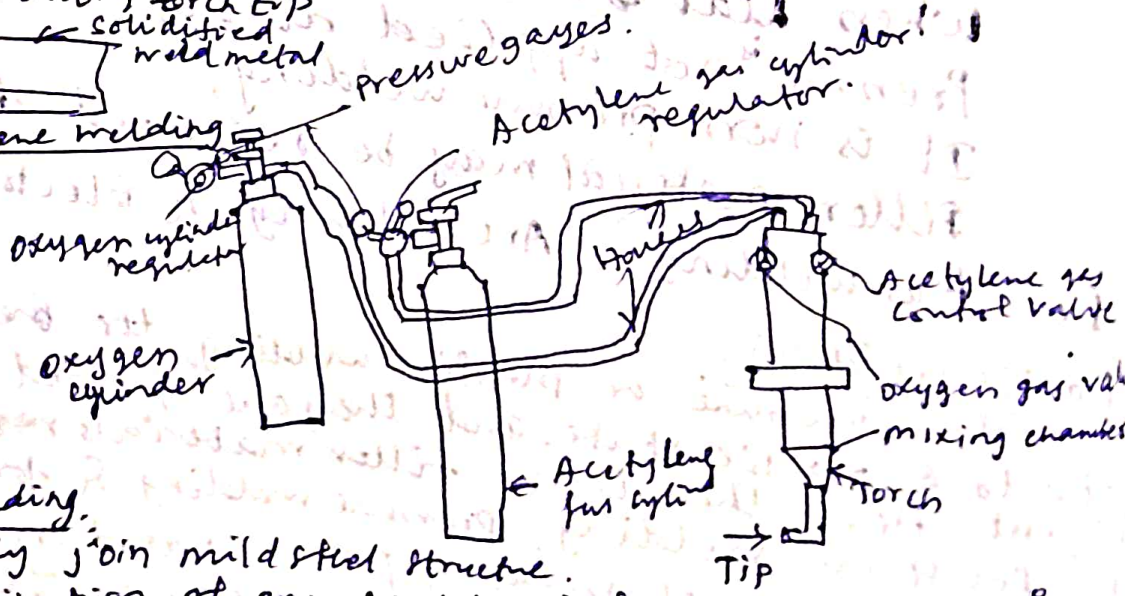 torch tip
solidified
weld metal
Pressure gauges.
Acetylene gas cylindor
regulator.
ene welding
oxygen cylinde
regulator
Houses
Acetylene gas
control valve
oxygen
cylinder
oxygen gas val
mixing chamber
Acetylene
Torch
Tip
ding.
y join mild steel structue.